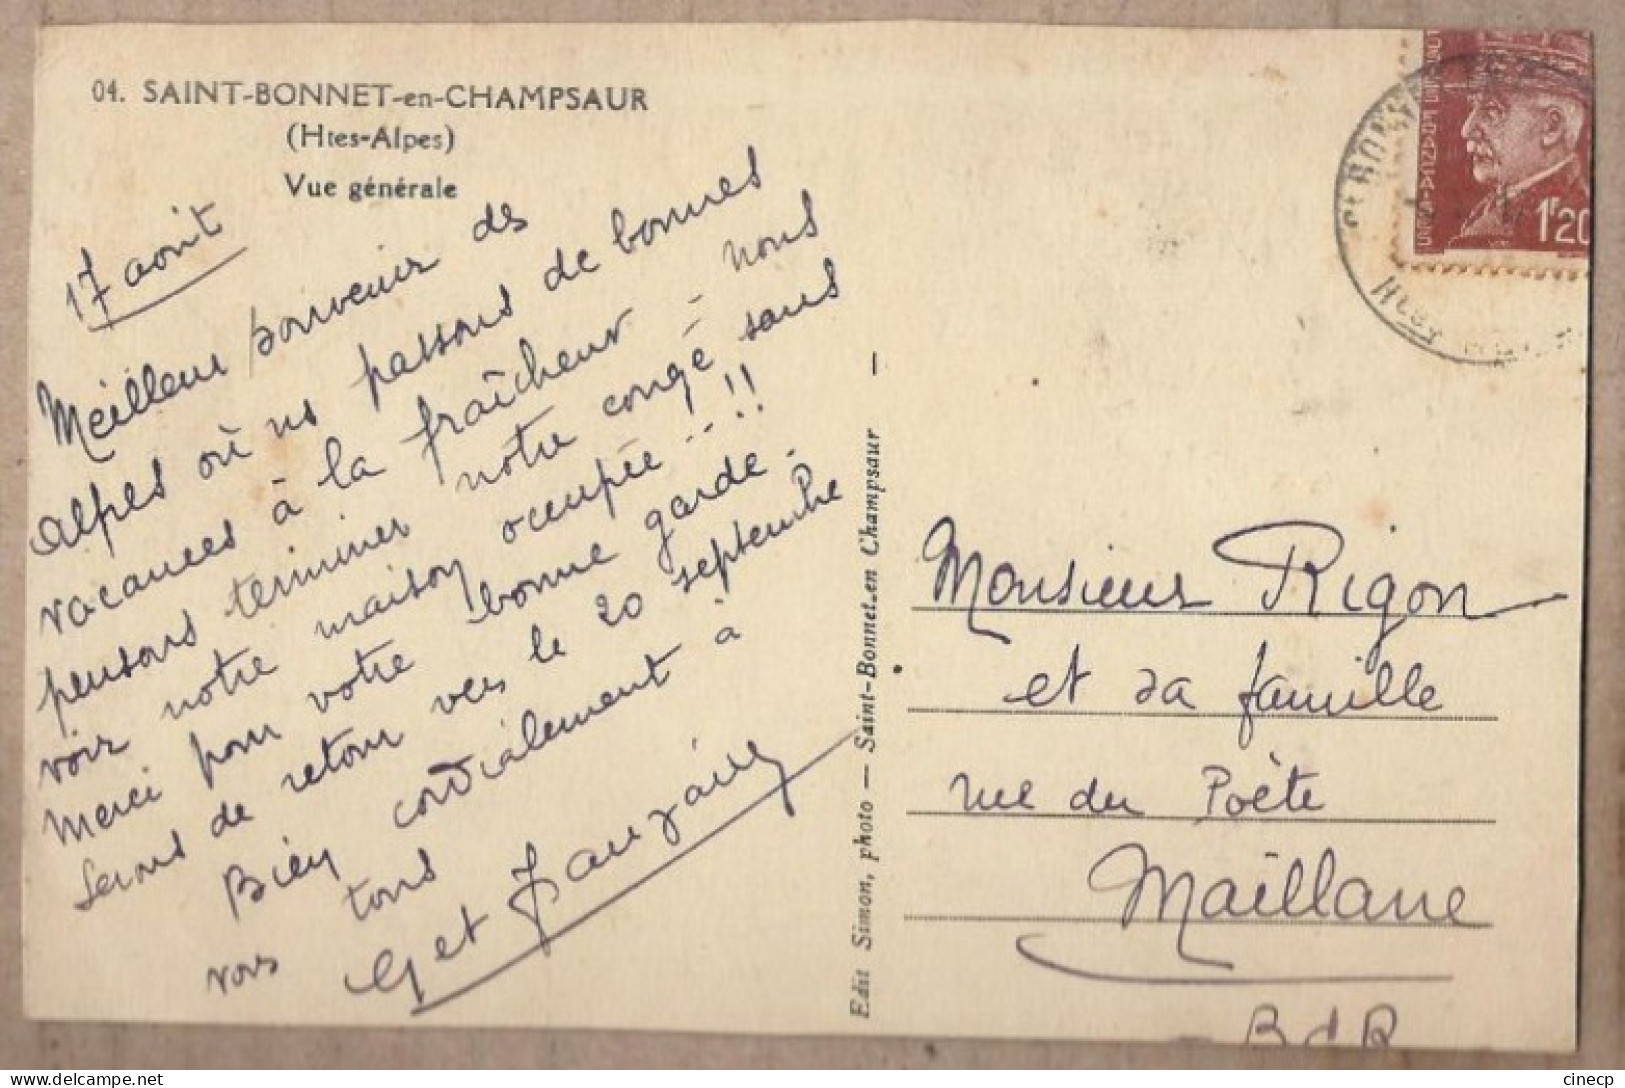 04. SAINT-BONNET-en-CHAMPSAUR
(Htes-Alpes)
Vue générale
17 août
Meilleur souvenir des
alpes où ns passons de bonnes
vacances à la fraîcheur - nous
pensons terminer notre congé sans
voir notre maison occupée...!!
Merci pour votre bonne garde.
Serons de retour vers le 20 septembre
Bien cordialement à
vous tous
G et J
Edit Simon, photo — Saint-Bonnet.en Champsaur
1F20
Monsieur Rigon
et sa famille
rue du Poète
Maillane
B d R
cinecp